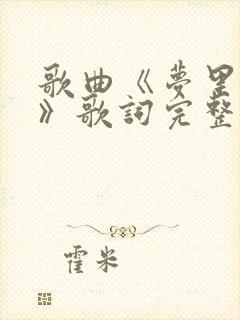 歌曲《夢里
》歌詞完整
霍米